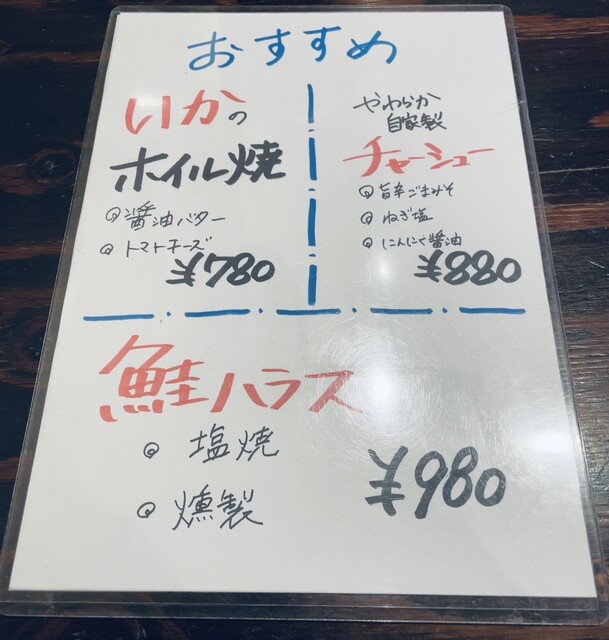 おすすめ
いかの
ホイル焼
醤油バター
トマトチーズ
¥780
やわらか
自家製
チャーシュー
旨辛ごまみそ
ねぎ塩
にんにく醤油
¥880
鮭ハラス
塩焼
燻製
¥980